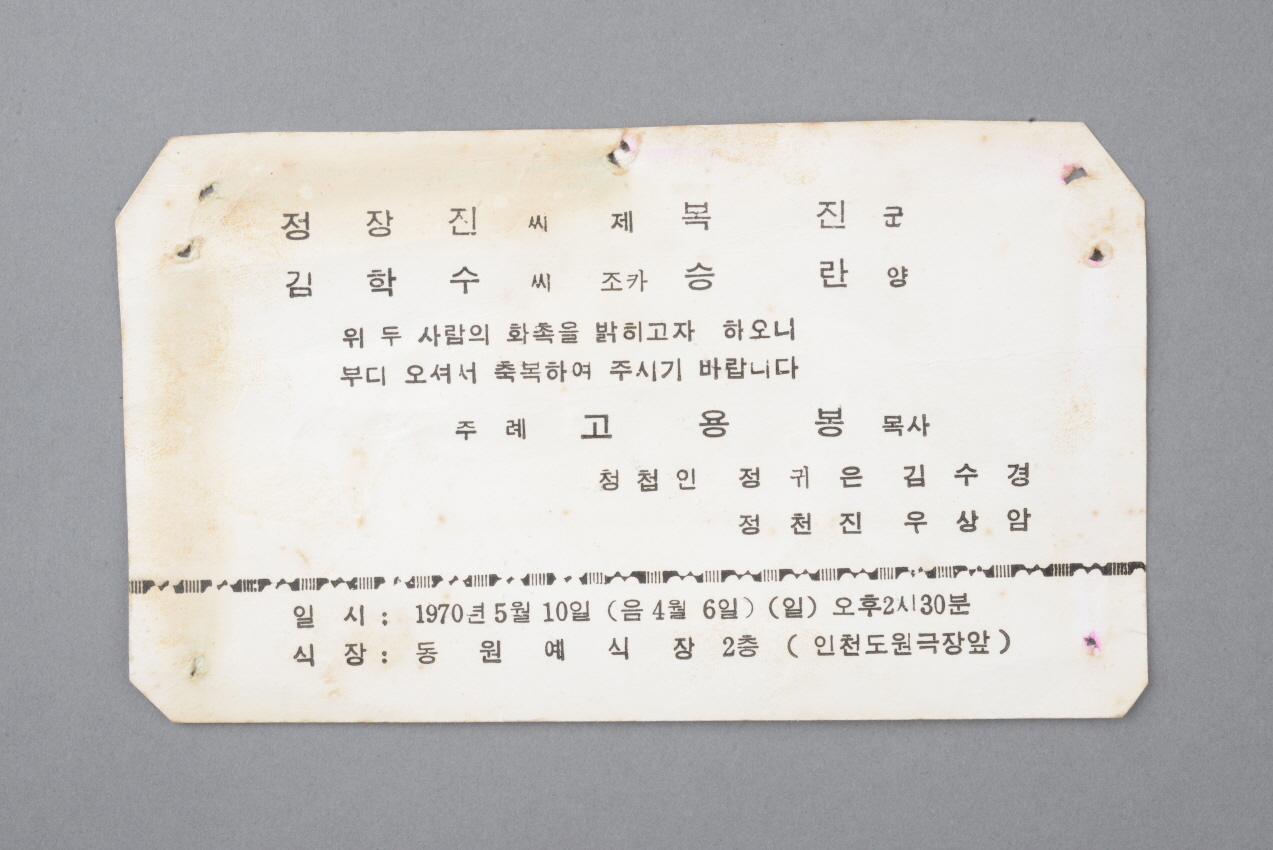 정 장 진 씨 제 복 진 군
김 학 수 씨 조카 승 란 양
위 두 사람의 화촉을 밝히고자 하오니
부디 오셔서 축복하여 주시기 바랍니다
주 례 고 용 봉 목사
청 첩 인 정 귀 은 김 수 경
정 천 진 우 상 암
일 시 : 1970년 5월 10일 (음 4월 6일) (일) 오후2시30분
식 장 : 동 원 예 식 장 2층 ( 인천도원극장앞 )